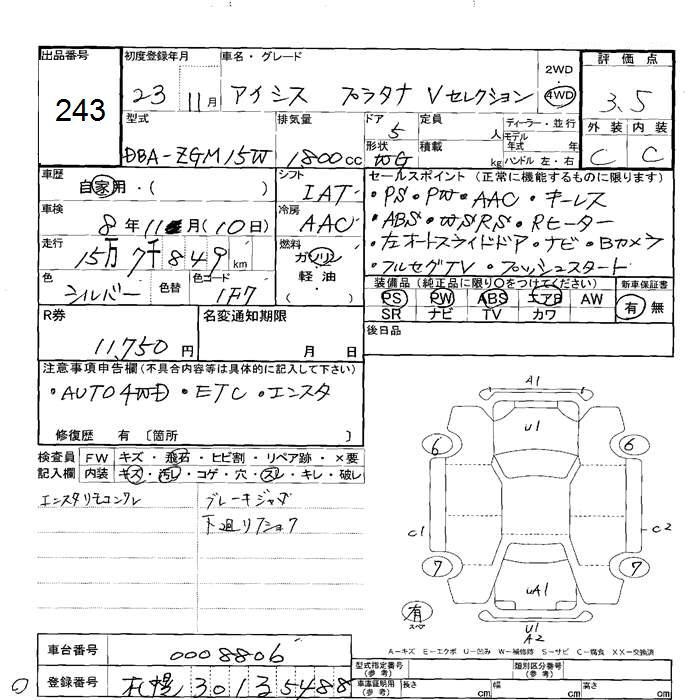 出品番号 初度登録年月 車名・グレード 2WD・4WD 評価点
243 23 11月 アイシス プラタナ Vセレクション 3.5
型式 排気量 ドア 5 定員 人 ディーラー・並行 モデル年式 年 外装 内装
DBA-ZGM15W 1800cc 形状 WG 積載 kg ハンドル 左・右 C C
車歴 自家用・( ) シフト IAT
セールスポイント (正常に機能するものに限ります)
・PS・PW・AAC・キーレス
・ABS・WSRS・Rヒーター
・左オートスライドドア・ナビ・Bカメラ
・フルセグTV・プッシュスタート
車検 8年11月(10日) 冷房 AAC
走行 15万7千849km 燃料 ガソリン・軽油 ( )
色 シルバー 色替 色コード 1F7
装備品 (純正品に限り○をつけてください) 新車保証書
PS PW ABS エアB AW 有・無
SR ナビ TV カワ
R券 11,750円 名変通知期限 月 日
後日品
注意事項申告欄 (不具合内容等は具体的に記入して下さい)
・AUTO4WD・ETC・エンスタ
修復歴 有 〔箇所 〕
検査員記入欄 FW キズ・飛石・ヒビ割・リペア跡・×要
内装 キズ・汚レ・コゲ・穴・スレ・キレ・破レ
エンスタリモコンクレ ブレーキジャダ
A1
U1
6 6
C1 C2
7 7
UA1
有 スペア
U1
A2
A-キズ E-エクボ U-凹み W-補修跡 S-サビ C-腐食 XX-交換済
車台番号 0008806
登録番号 札幌 301 5488
型式指定番号 (参考) 類別区分番号 (参考)
車庫証明用 (参考) 長さ cm 幅 cm 高さ cm